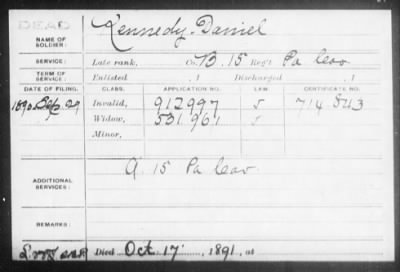 DEAD
NAME OF SOLDIER: Kennedy, Daniel
SERVICE: Late rank, Co. B. 15 Reg't Pa Cav
TERM OF SERVICE: Enlisted , 1 Discharged , 1
DATE OF FILING. CLASS. APPLICATION NO. LAW. CERTIFICATE NO.
1890. Sep. 29 Invalid, 912997 J 714.543
Widow, 531.961 J
Minor,
ADDITIONAL SERVICES: A. 15 Pa Cav.
REMARKS:
Died Oct. 17, 1891, at